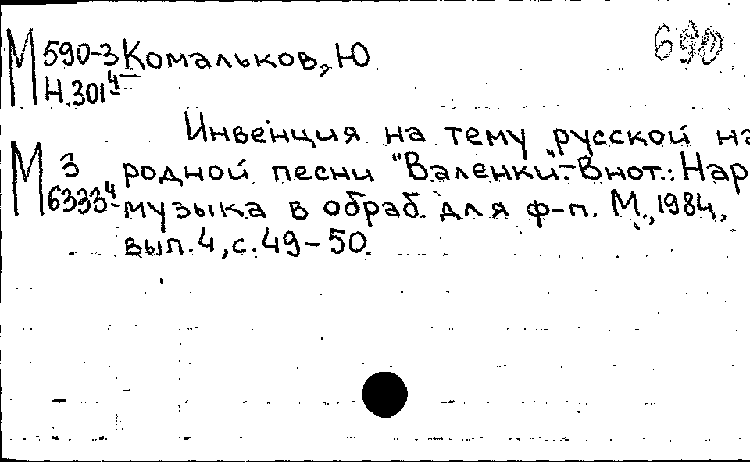 М 590-3 Комальков, Ю
Н.301⁴ 690
Инвенция на тему русской на
М 3 родной песни "Валенки".- В нот.: Нар
6333⁴ музыка в обраб. для ф-п. М., 1984,
вып. 4, с. 49-50.